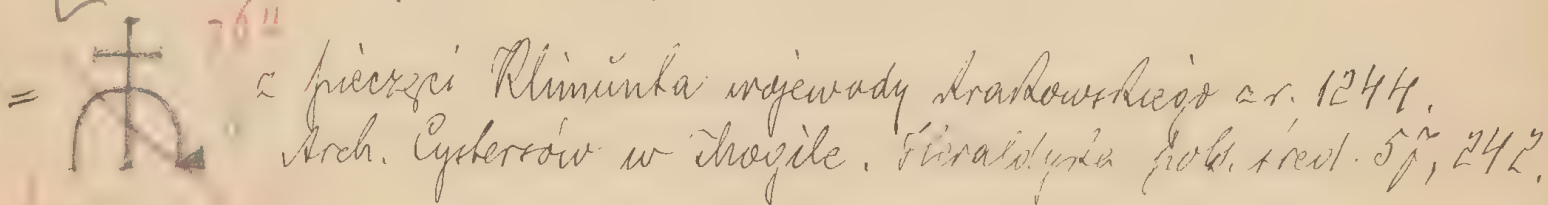 = z pieczęci Klimunta wojewody krakowskiego z r. 1244.
Arch. Cystersów w Mogile. Heraldyka pols. śred. 57, 242.